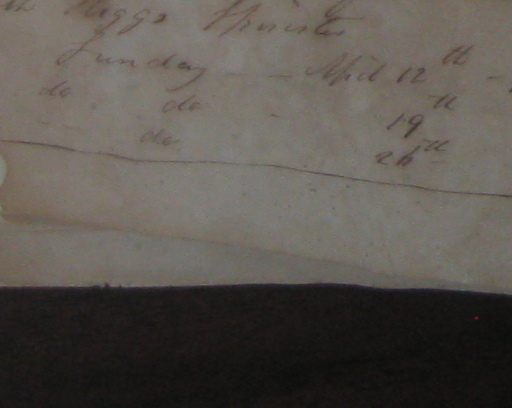 th Riggs Spinster
Sunday - - April 12th -
do do - 19th
do 26th